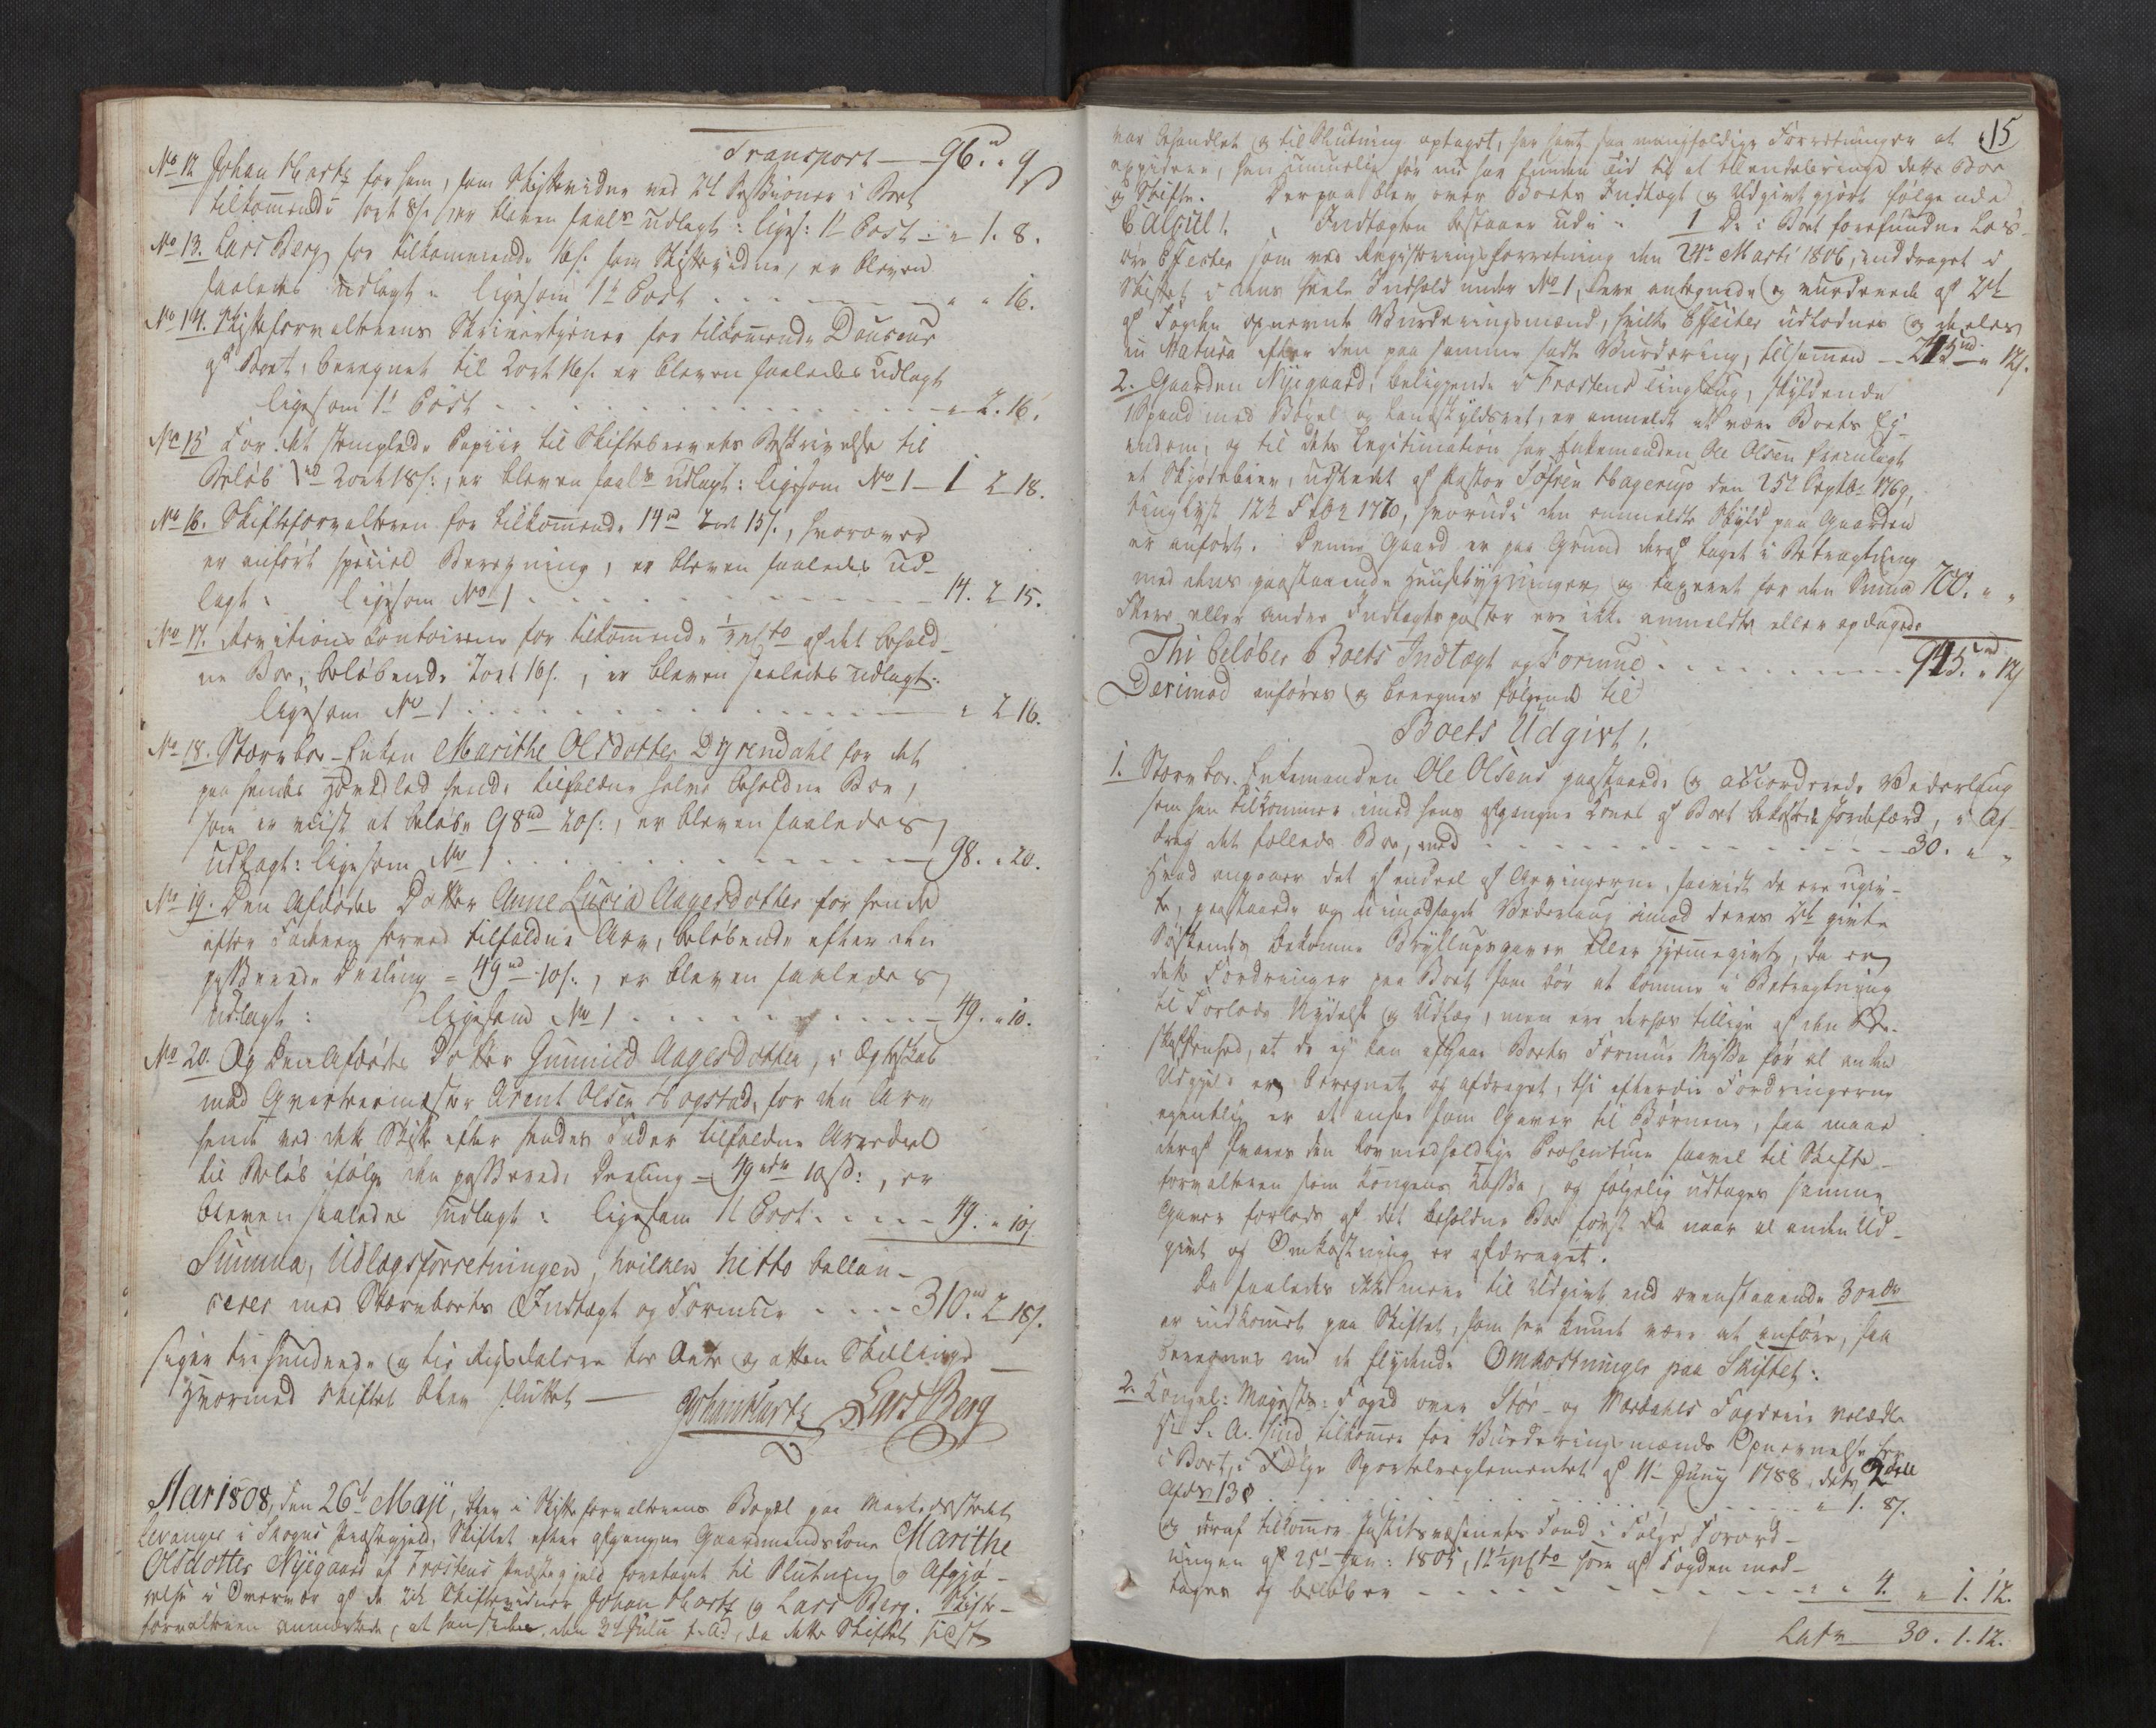 Transport — 96.rd „ 9 s
No 12. Johan Hartz for ham, som Skiftevidne ved 2de Sessioner i Boet
tilkommende 1 ort 8 s. er bleven saal: udlagt: liges: 1te Post - „ 1. 8.
No 13. Lars Berg for tilkommende 16 s. som Skiftevidne, er bleven
saaledes udlagt: ligesom 1te Post . . . . „ „ 16.
No 14. Skifteforvalterens Skrivertjener for tilkommende Douceur
af Boet, beregnet til 2 ort 16 s. er bleven saaledes udlagt
ligesom 1te Post - - - „ 2. 16.
No 15 For det stemplede Papiir til Skiftebrevets Beskrivelse til
Beløb 1 rd 2 ort 18 s:, er bleven saal: udlagt: ligesom No 1 — 1 2 18.
No 16. Skifteforvalteren for tilkommende 14 rd 2 ort 15 s., hvorover
er anført speciel Beregning, er bleven saaledes ud-
lagt: ligesom No 1 - - - 14. 2 15.
No 17. Revisions Contoirene for tilkommende 1/4 pCto af det behold-
ne Boe, beløbende 2 ort 16 s., er bleven saaledes udlagt:
ligesom No 1 - - - „ 2 16.
No 18. Stervboe-Enken Marithe Olsdotter Dyrendahl for det
paa hendes Hovedlod hende tilfaldne halve beholdne Boe,
som er viist at beløbe 98 rd 20 s:, er bleven saaledes
udlagt: ligesom No 1 - - - 98. „ 20.
No 19. Den Afdødes Datter Anne Lucia Aagesdotter for hende
efter Faderen herved tilfaldne Arv, beløbende efter den
passerede Deeling = 49 rd 10 s:, er bleven saaledes
udlagt: ligesom No 1 - - - 49. „ 10.
No 20. Og den Afdødes Datter Gunnild Aagesdotter, i Ægteskab
med Qvarteermester Arent Olsen Hopstad, for den Arv
hende ved dette Skifte efter hendes Fader tilfaldne Arvedeel
til Beløb ifølge den passerede Deeling = 49 rdr 10 s:, er
bleven saaledes udlagt: ligesom 1te Post - - - 49. „ 10 s
Summa, Udlagsforretningen, hvilken netto ballan-
cerer med Stervboets Indtægt og Formue - - - 310.rd 2 18 s.
siger trehundrede og tie Rigsdalere toe Orte og atten Skillinge —
Hvormed Skiftet blev sluttet —
Johan Hartz Lars Berg
Aar 1808, den 26de Maji, blev i Skifteforvalterens Bopæl paa Markedsstædet
Levanger i Skogns Præstegjeld, Skiftet efter afgangne Gaardmandskone Marithe
Olsdotter Nyegaard af Frostens Præstegjeld foretaget til Slutning og Afgjø-
relse i Overvær af de 2de Skiftevidner Johan Hartz og Lars Berg. Skifte-
forvalteren anmærkede, at han siden den 3de Julii f. A:, da dette Skiftet sidst
15
var behandlet og til Slutning optaget, har havt saa mangfoldige Forretninger at
expidere, han umuelig før nu har funden Tid til at tilendebringe dette Boe
og Skifte. Derpaa blev over Boets Indtægt og Udgivt gjort følgende
Calcul! Indtægten bestaaer udi: 1 De i Boet forefundne Løs-
øre Effecter som ved Registreringsforretning den 24de Marti 1806, inddraget i
Skiftet i dens heele Indhold under No 1, bleve antegnede og vurderede af 2de
af Fogden opnevnte Vurderingsmænd, hvilke Effecter udlodnes og deeles
in Natura efter den paa samme satte Vurdering, tilsammen — 245 rd „ 12 s.
2. Gaarden Nyegaard, beliggende i Frostens Tinglaug, skyldende
1 Spand med Bøxel og Landskyldsret, er anmeldt at være Boets Ej-
endom, og til dets Legitimation har Enkemanden Ole Olsen fremlagt
et Skjødebrev, udstedt af Pastor Søfren Hagerup den 25de Septbr 1769,
tinglyst 12te Febr 1770, hvorudi den anmeldte Skyld paa Gaarden
er anført. Denne Gaard er paa Grund deraf taget i Betragtning
med dens paastaaende Huusebygninger og taxeret for den Summa 700. „ „
Flere eller andre Indtægtsposter ere ikke anmeldte eller opdagede
Thi beløber Boets Indtægt og Formue - - - 945.rd „ 12 s
Derimod anføres og beregnes følgende til
Boets Udgivt!
1. Stervboe-Enkemanden Ole Olsens paastaaede og accorderede Vederlag
som han tilkommer imod hans afgangne Kones af Boet bekostede Jordefærd, i Af-
drag det fælleds Boe, med - - - 30. „ „
Hvad angaaer det af endeel af Arvingerne, saavidt de ere ugiv-
te, paastaaede og uimodsagde Vederlaug imod deres 2de givte
Sødskendes bekomne Bryllupsgaver eller Hiemegivt, da er
dette Fordringer paa Boet som bør at komme i Betragtning
til Forlods Nydelse og Udlæg, men ere derhos tillige af den Be-
skaffenhed, at de ej kan afgaae Boets Formue Massa før al anden
Udgivt er beregnet og afdraget, thi efterdie Fordringerne
egentlig er at ansee som Gaver til Børnene, saa maae
deraf svares den lovmedholdige Procentum saavel til Skifte-
forvalteren som Kongens Kasse, og følgelig udtages samme
Gaver forlods af det beholdne Boe først da naar al anden Ud-
givt og Omkostning er afdraget.
Da saaledes ikke meere til Udgivt end ovenstaaende 30 rdr
er indkomet paa Skiftet, som her kunde være at anføre, saa
beregnes nu de flydende Omkostninger paa Skiftet:
2. Kongel: Majests: Foged over Stør- og Værdahls Fogderie velædle
Hr S. A. Lind tilkommer for Vurderingsmænds Opnevnelse her
i Boet, i Følge Sportelreglementet af 11te Junij 1788, dets 2det
Afds 13 § - - - „ 1. 8 s.
og deraf tilkommer Justitsvæsenets Fond i Følge Forord-
ningen af 25de Jan: 1805, 12½ pCto som af Fogden mod-
tages og beløber - - - „ „ 4. „ 1. 12.
Latr 30. 1. 12.